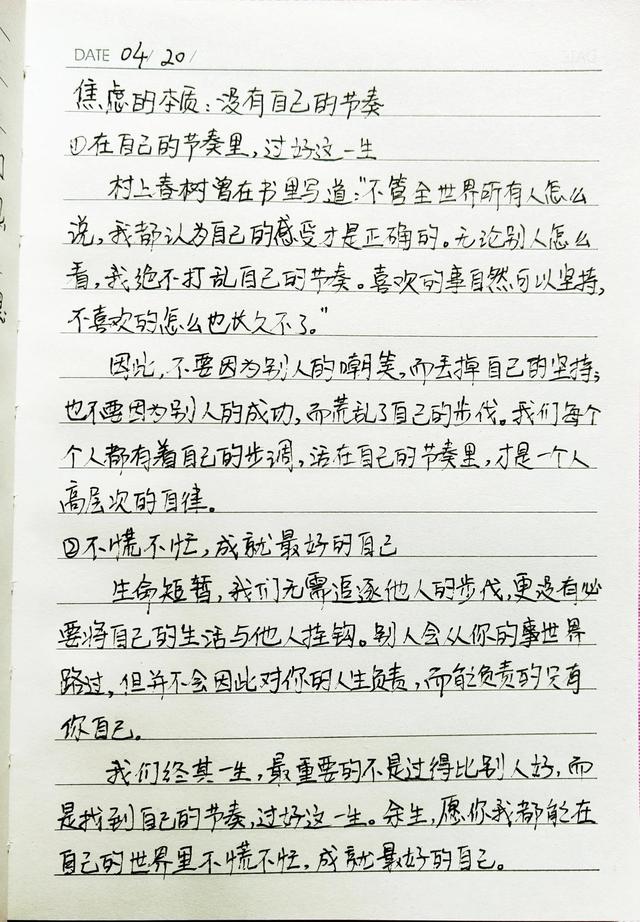 DATE 04/20/
焦虑的本质：没有自己的节奏
①在自己的节奏里，过好这一生
村上春树曾在书里写道："不管全世界所有人怎么
说，我都认为自己的感受才是正确的。无论别人怎么
看，我绝不打乱自己的节奏。喜欢的事自然可以坚持，
不喜欢的怎么也长久不了。"
因此，不要因为别人的嘲笑，而丢掉自己的坚持；
也不要因为别人的成功，而荒乱了自己的步伐。我们每个
个人都有着自己的步调，活在自己的节奏里，才是一个人
高层次的自律。
②不慌不忙，成就最好的自己
生命短暂，我们无需追逐他人的步伐，更没有必
要将自己的生活与他人挂钩。别人会从你的事世界
路过，但并不会因此对你的人生负责，而能负责的只有
你自己。
我们终其一生，最重要的不是过得比别人好，而
是找到自己的节奏，过好这一生。余生，愿你我都能在
自己的世界里不慌不忙，成就最好的自己。